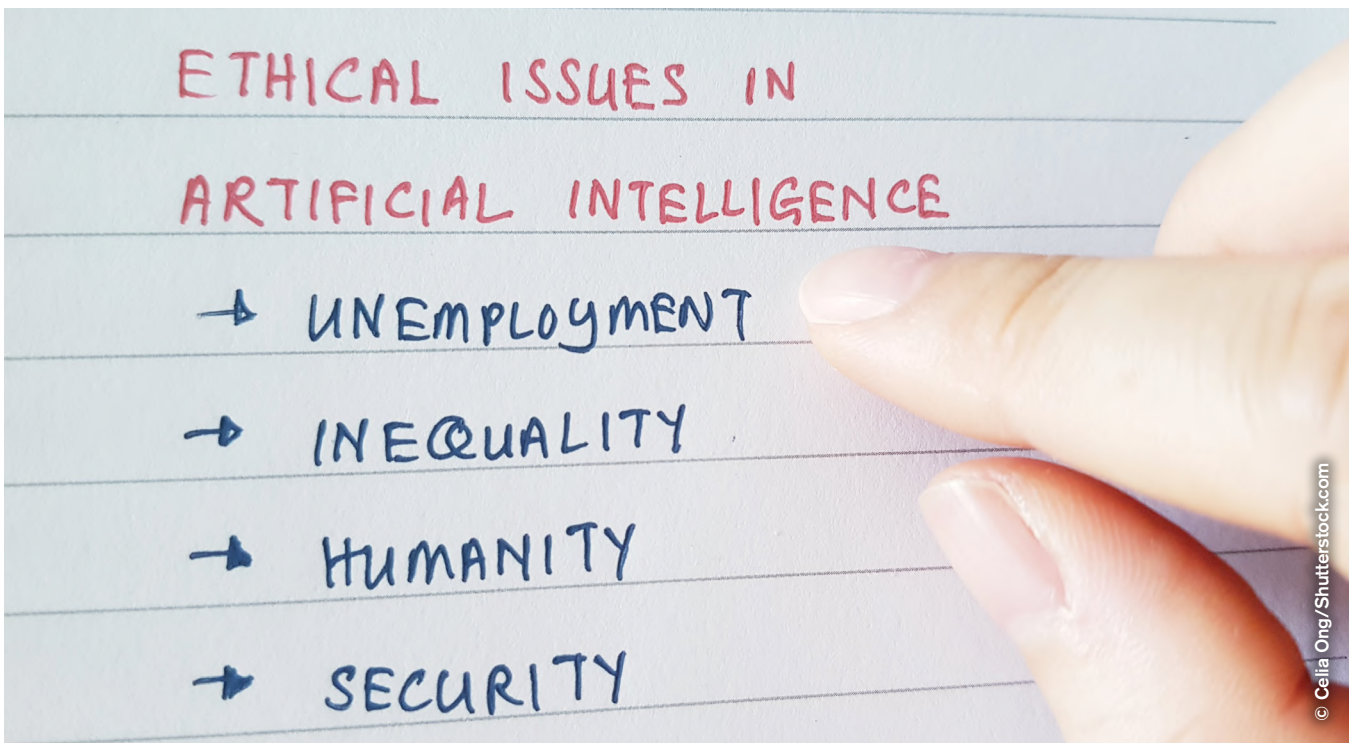 ETHICAL ISSUES IN
ARTIFICIAL INTELLIGENCE
→ UNEMPLOYMENT
→ INEQUALITY
→ HUMANITY
→ SECURITY
© Celia Ong/Shutterstock.com